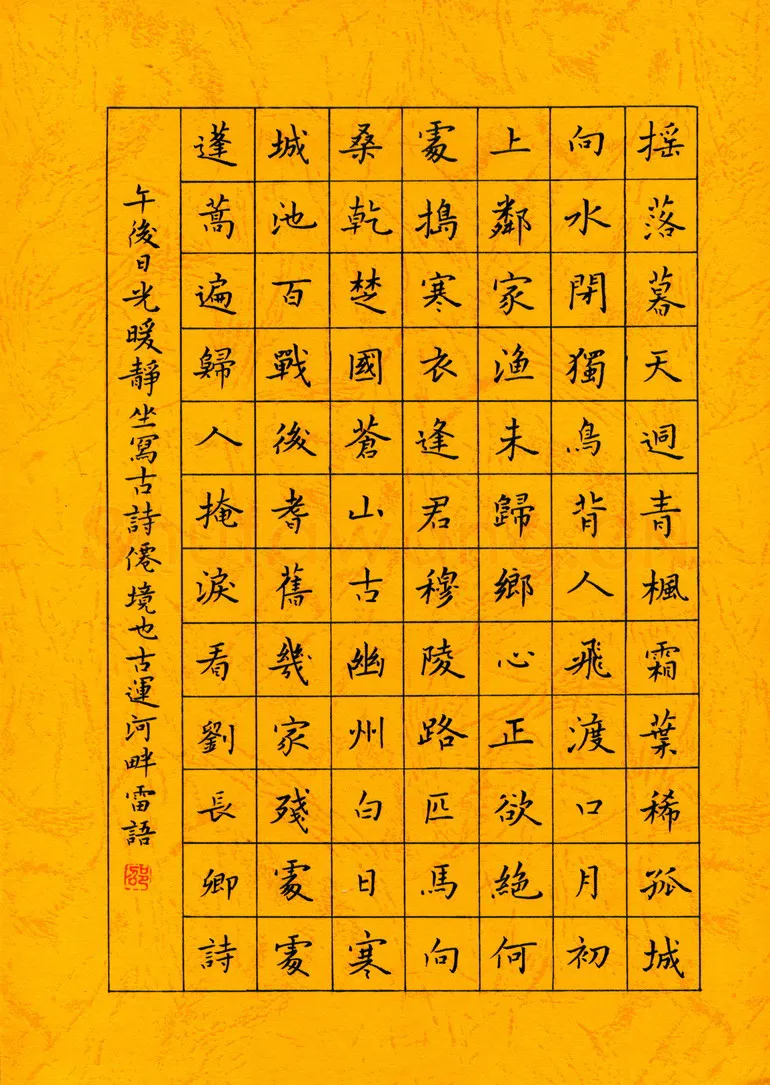 搖落暮天迥青楓霜葉稀孤城
向水閉獨鳥背人飛渡口月初
上鄰家漁未歸鄉心正欲絕何
處搗寒衣逢君穆陵路匹馬向
桑乾楚國蒼山古幽州白日寒
城池百戰後耆舊幾家殘處處
蓬蒿遍歸人掩淚看劉長卿詩
午後日光暖靜坐寫古詩僊境也古運河畔雷語
邵